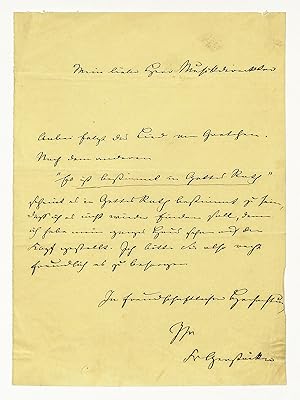 Mein lieber Herr Musikdirector
Anbei folgt das Lied von Gretchen.
Nach dem anderen
"Es ist bestimmt in Gottes Rath"
scheint es in Gottes Rath bestimmt zu sein,
daß ich es nicht wieder finden soll, denn
ich habe mein ganzes Haus schon auf den
Kopf gestellt. Ich bitte Sie also recht
freundlich es zu besorgen.
In freundschaftlicher Hochachtung
Ihr
Fr Gerstäcker